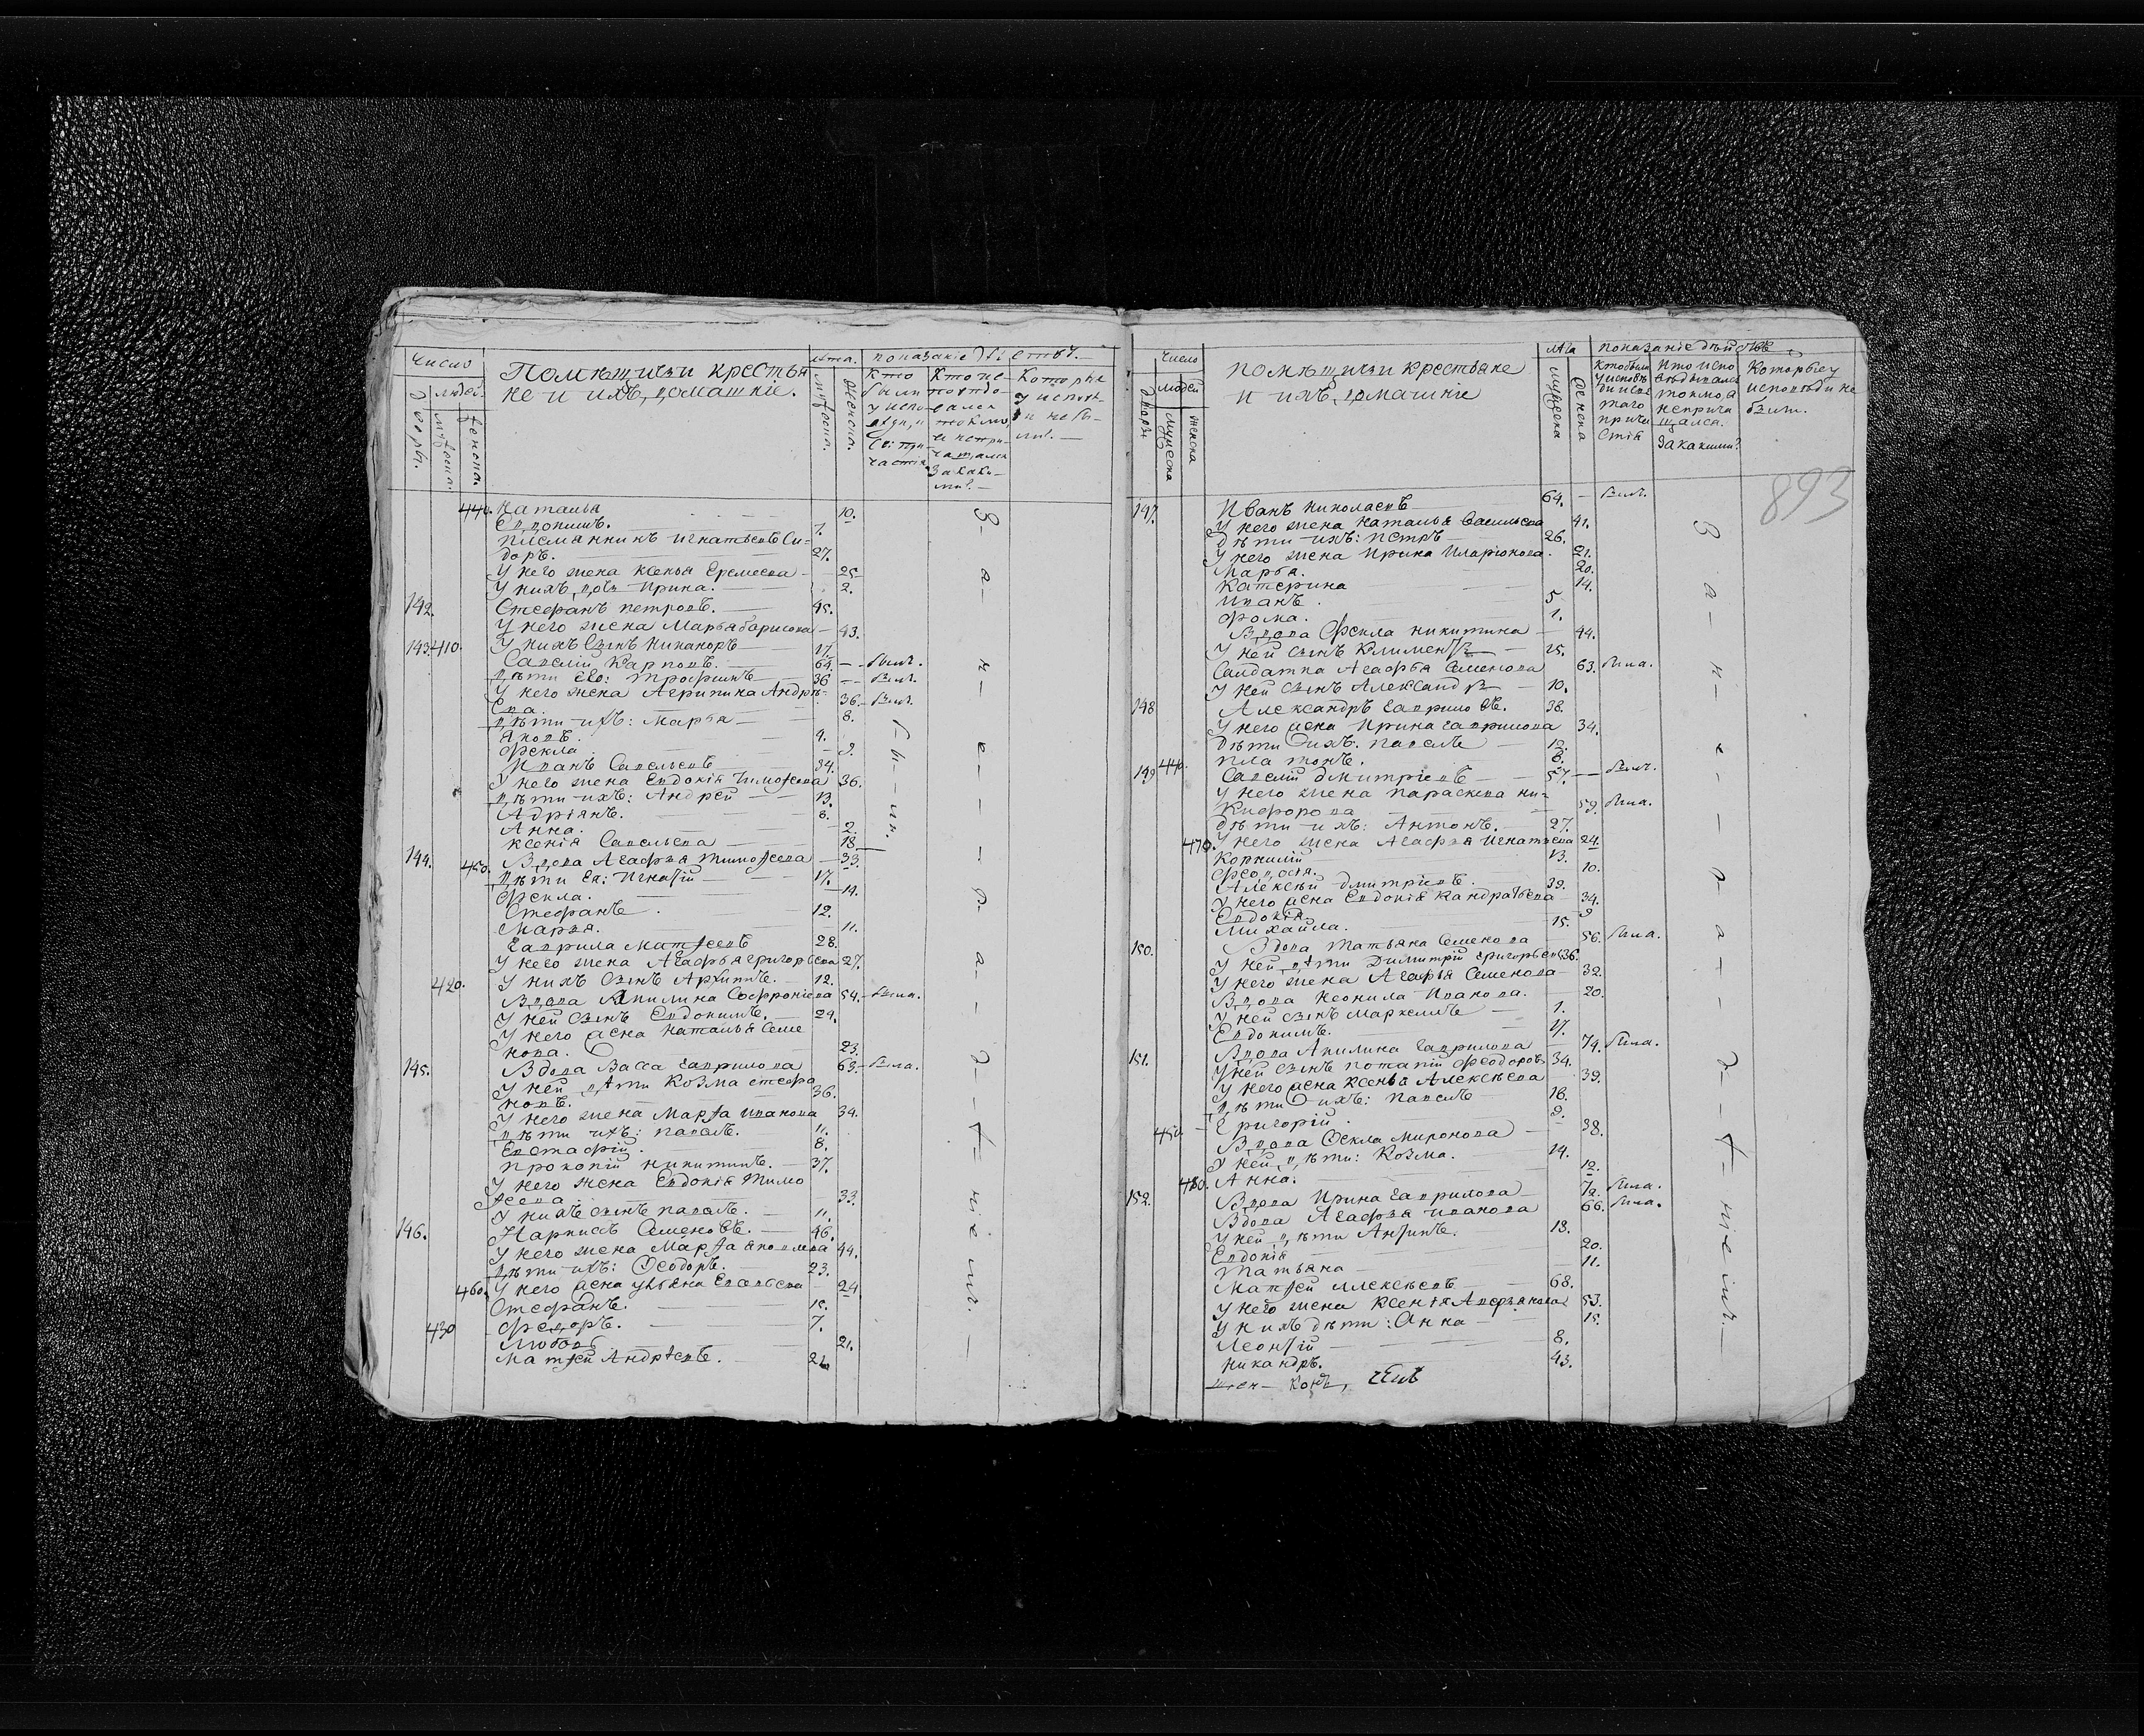 Число
людей.
Дворы.
мужеска.
женска.
Помѣщичьи крестья
не и ихъ домашніе.
лѣта.
мужеска.
женска.
показаніе дѣйствъ.
Кто
были
у испо
вѣди, и
св: при
частія.
Кто не
исповѣдо
вался
токмо,
и непри
чащался
за каки
ми.
Которыя
у испов
ѣди не бы
ли.
440. Наталья 10.
Евдокимъ. 7.
писманникъ Игнатьевъ Си=
доръ. 27.
У него жена Ксенья Еремеева 25
У нихъ дочь Ирина. 2.
142. Стефанъ петровъ. 45.
У него жена Марья борисова 43.
У нихъ сынъ Никаноръ 17.
143. 410. Савелій Карповъ. 64. Былъ.
дѣти его: Трофимъ 36 Былъ.
У него жена Агрипина Андрѣ-
ева. 36. Был.
дѣти ихъ: Марья 8.
Яковъ. 4.
Фекла 2.
Иванъ Савельевъ 34.
У него жена Евдокія Тимоѳеева 36.
дѣти ихъ: Андрей 13.
Адріянъ. 6.
Анна. 2.
Ксенія Савельева 18
144. 450. Вдова Агафья Тимоѳеева 33.
Дѣти Ея: Игнатій 17.
Фекла. 14.
Стефанъ. 12.
Марья. 11.
Гаврила Матѳеевъ 28.
У него жена Агафья григорьева 27.
420. У нихъ сынъ Архипъ. 12.
Вдова Акилина Софроніева 54. Была.
У ней сынъ Евдокимъ. 24.
У него жена Наталья Семе
нова. 23.
145. Вдова Васса Гаврилова 63. Была.
У ней дѣти Козма стефа
новъ. 36.
У него жена Марѳа Иванова 34.
дѣти ихъ: павелъ. 11.
Евстафій. 8.
Прокопій Никитинъ. 37.
У него жена Евдокія Тимо
ѳеева 33.
У нихъ сынъ павелъ. 11.
146. Карписъ Семеновъ. 46.
У него жена Марѳа яковлева 44.
дѣти ихъ: Ѳеодоръ. 23.
460. У него жена ульяна Евсевьева 24
Стефанъ. 15.
430 Федоръ. 7.
Любовь 21.
Матѳей Андрѣевъ.
За нерадѣніемъ.
Число
людей
Дворы
мужеска
женска
помѣщичьи крестьяне
и ихъ домашніе
лѣта
мужеска
женска
показаніе дѣйствъ
Кто были
у исповѣ
ди и свя
таго
прича
стія
Кто испо
вѣдывался
токмо, а
неприча
щался.
за какими?
Которые у
исповѣди не
были.
893
147. Иванъ Николаевъ 64. Былъ.
У него жена Наталья Васильева 41.
Дѣти ихъ: петръ 26.
У него жена Ирина Иларіонова. 21.
Марья. 20.
Катерина 14.
Иванъ. 5
Фома. 1.
Вдова Фекла никитина 44.
У ней сынъ Климентъ 25.
Салдатка Агафья Семенова 63. Была.
У ней сынъ Александръ 10.
148 Александръ Гавриловъ. 38.
У него жена Ирина Гаврилова 34.
Дѣти ихъ: павелъ 12.
Платонъ. 8.
149 440. Савелій Дмитріевъ 57. Былъ.
У него жена параскева ни=
кифорова 59. Была.
дѣти ихъ: Антонъ. 27.
470. У него жена Агафья Игнатьева 24.
Корнилій 13.
Феодосія. 10.
Алексѣй Дмитріевъ. 39.
У него жена Евдокія Кандратьева 34.
Евдокія. 9
Михайла. 15.
150. Вдова Татьяна Семенова 56. Была.
У ней дѣти Димитрій григорьевъ 36.
У него жена Агафья Семенова 32.
Вдова Неонила Иванова. 20.
У ней сынъ Маркелъ 1.
Евдокимъ. 17.
151. Вдова Акилина Гаврилова 74. Была.
У ней сынъ потапій Феодоровъ 34.
У него жена Ксенья Алексѣева 39.
дѣти ихъ: павелъ 16.
450 Григорій. 2.
Вдова Фекла Миронова 38.
У ней дѣти: Козма. 14.
480. Анна. 12.
152. Вдова Ирина Гаврилова Была.
Вдова Агафья Иванова 66. Была.
У ней дѣти Антипъ. 18.
Евдокія 20.
Татьяна 11.
Матѳей Алексѣевъ 68.
У него жена Ксенія Аверьянова 53.
У нихъ дѣти: Анна 15.
Леонтій 8.
Никандръ. 43.
За нерадѣніемъ